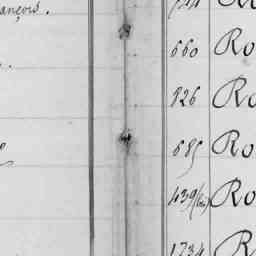 ançois.
660 Ro
826 Ro
685 Ro
439 (bis) Ro
1734 R